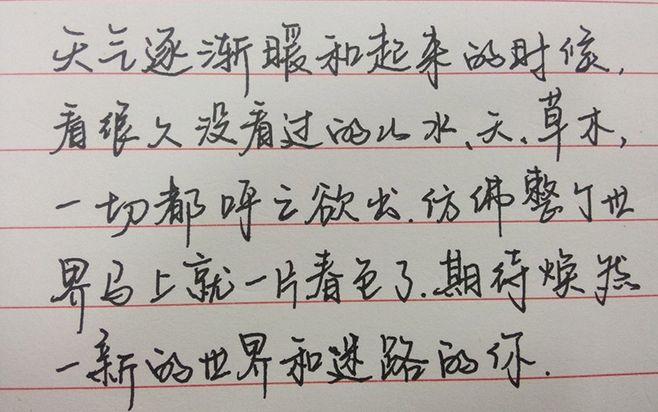 天气逐渐暖和起来的时候,
看很久没看过的山水、天、草木,
一切都呼之欲出.仿佛整个世
界马上就一片春色了.期待焕然
一新的世界和迷路的你.